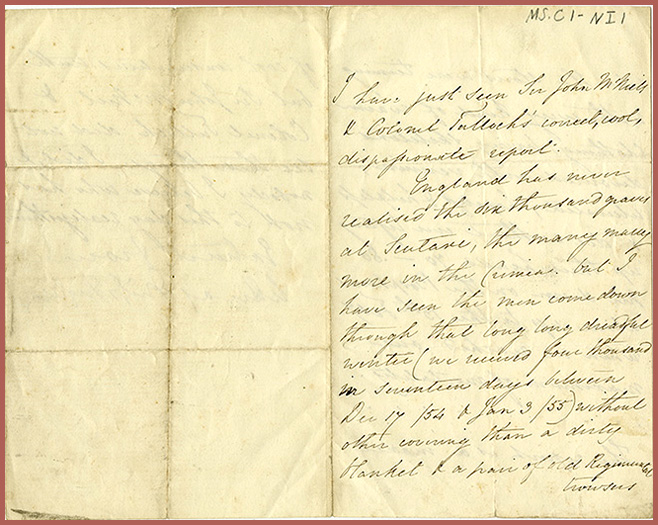 MS.C1-NI1
I have just seen Sir John McNeill's
& Colonel Tulloch's correct, cool,
dispassionate report.
England has never
realised the six thousand graves
at Scutari, the many many
more in the Crimea. but I
have seen the men come down
through that long long dreadful
winter (we received four thousand
in seventeen days between
Dec 17 /54 & Jan 3 /55) without
other covering than a dirty
blanket & a pair of old Regimental
trowsers